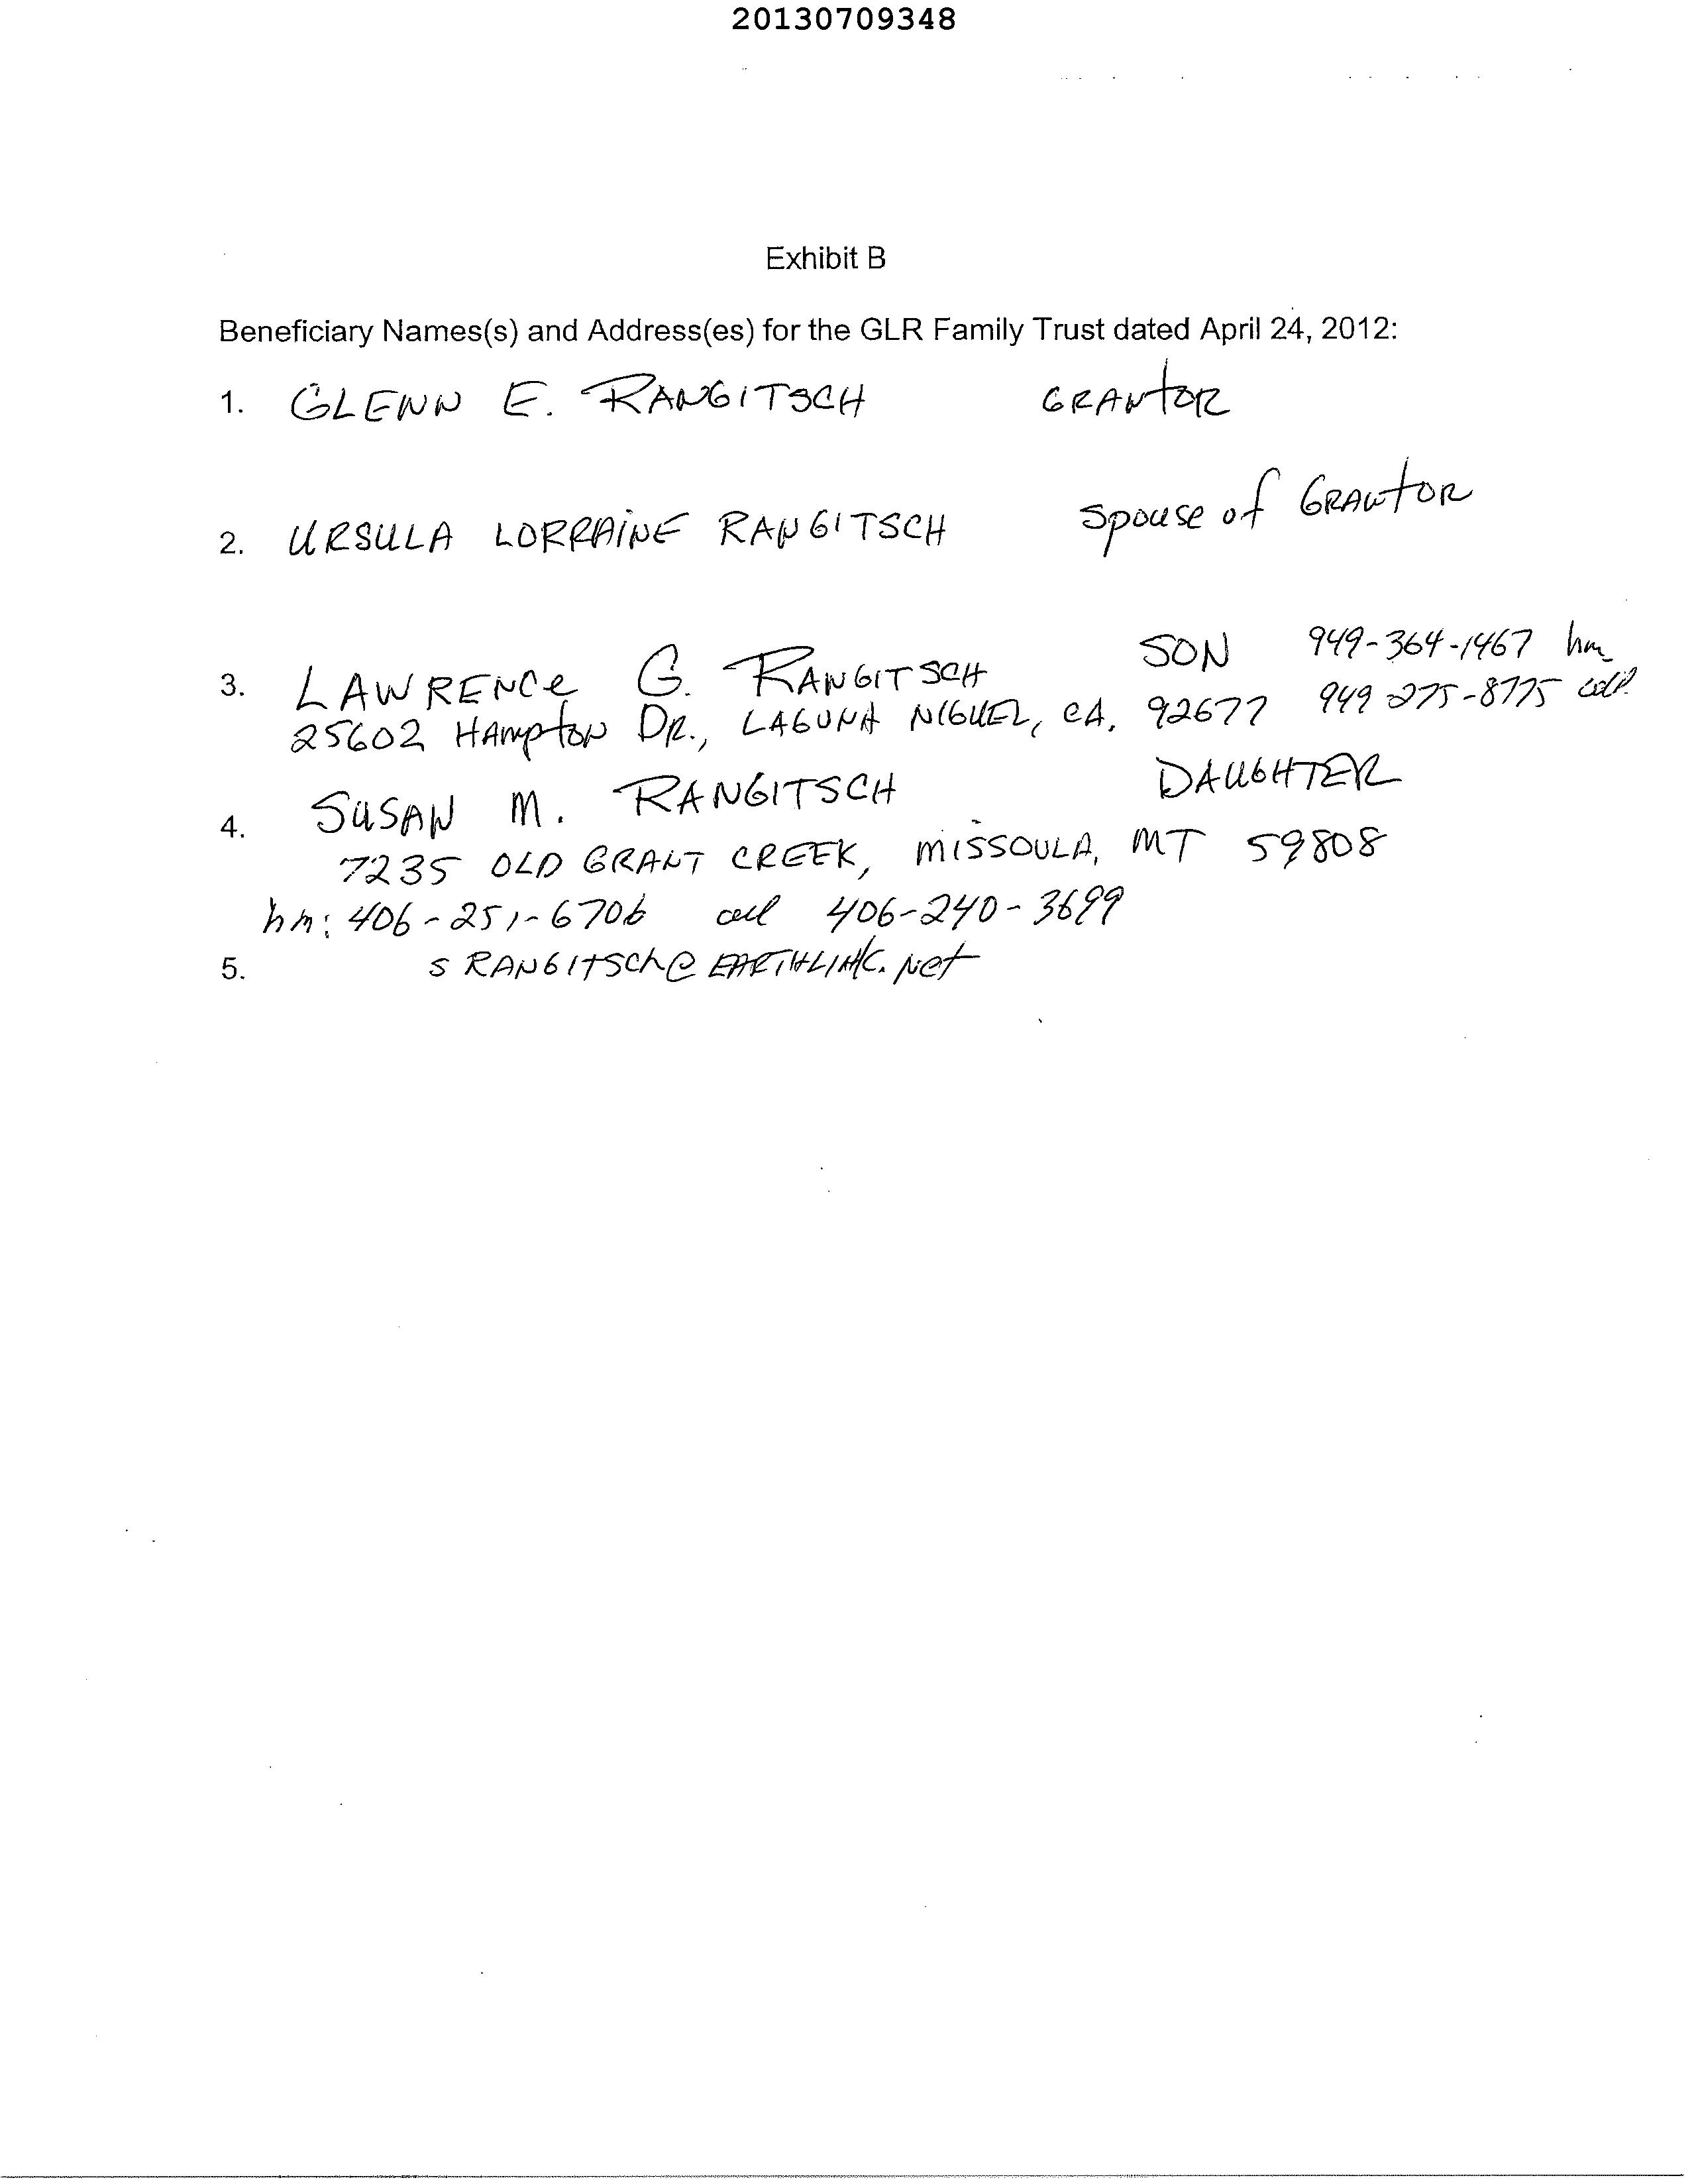 20130709348
Exhibit B
Beneficiary Names(s) and Address(es) for the GLR Family Trust dated April 24, 2012:
1. GLENN E. RANGITSCH GRANTOR
2. URSULA LORRAINE RANGITSCH Spouse of GRANTOR
3. LAWRENCE G. RANGITSCH SON 949-364-1467 hm
25602 HAMPTON DR., LAGUNA NIGUEL, CA. 92677 949 275-8775 cell
4. SUSAN M. RANGITSCH DAUGHTER
7235 OLD GRANT CREEK, MISSOULA, MT 59808
hm: 406-251-6706 cell 406-240-3699
5. SRANGITSCH@EARTHLINK.Net